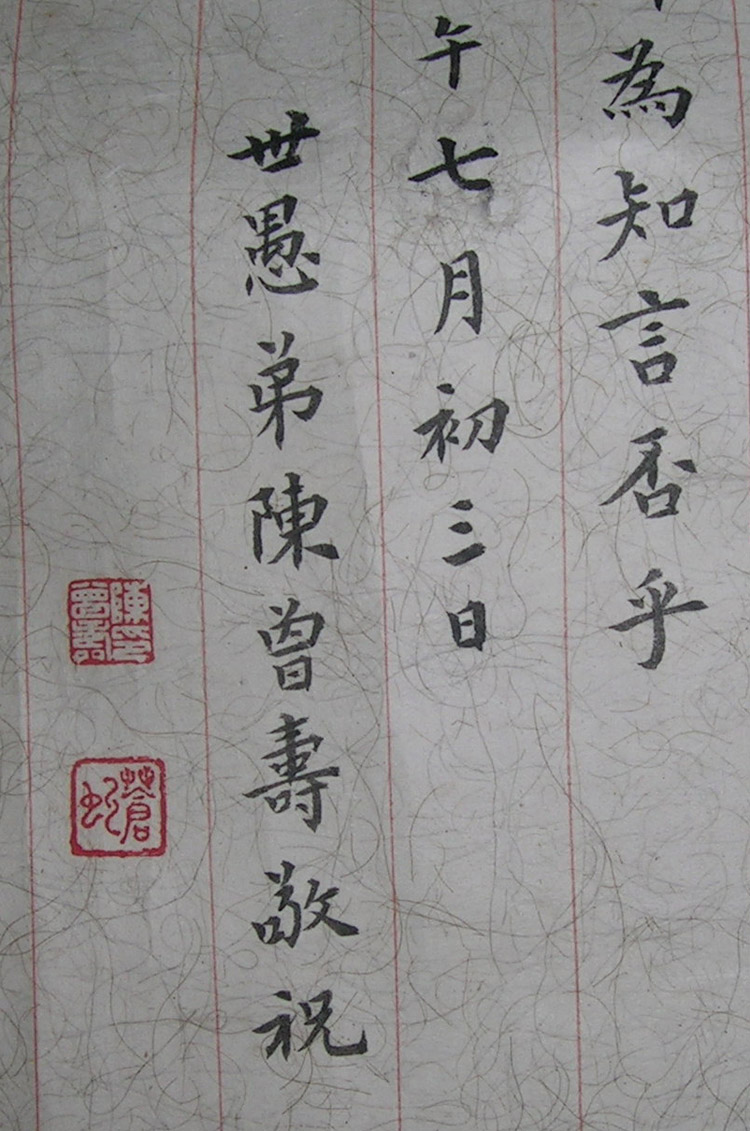 為知言否乎
午七月初三日
世愚弟陳曾壽敬祝
陳曾壽印
蒼虬